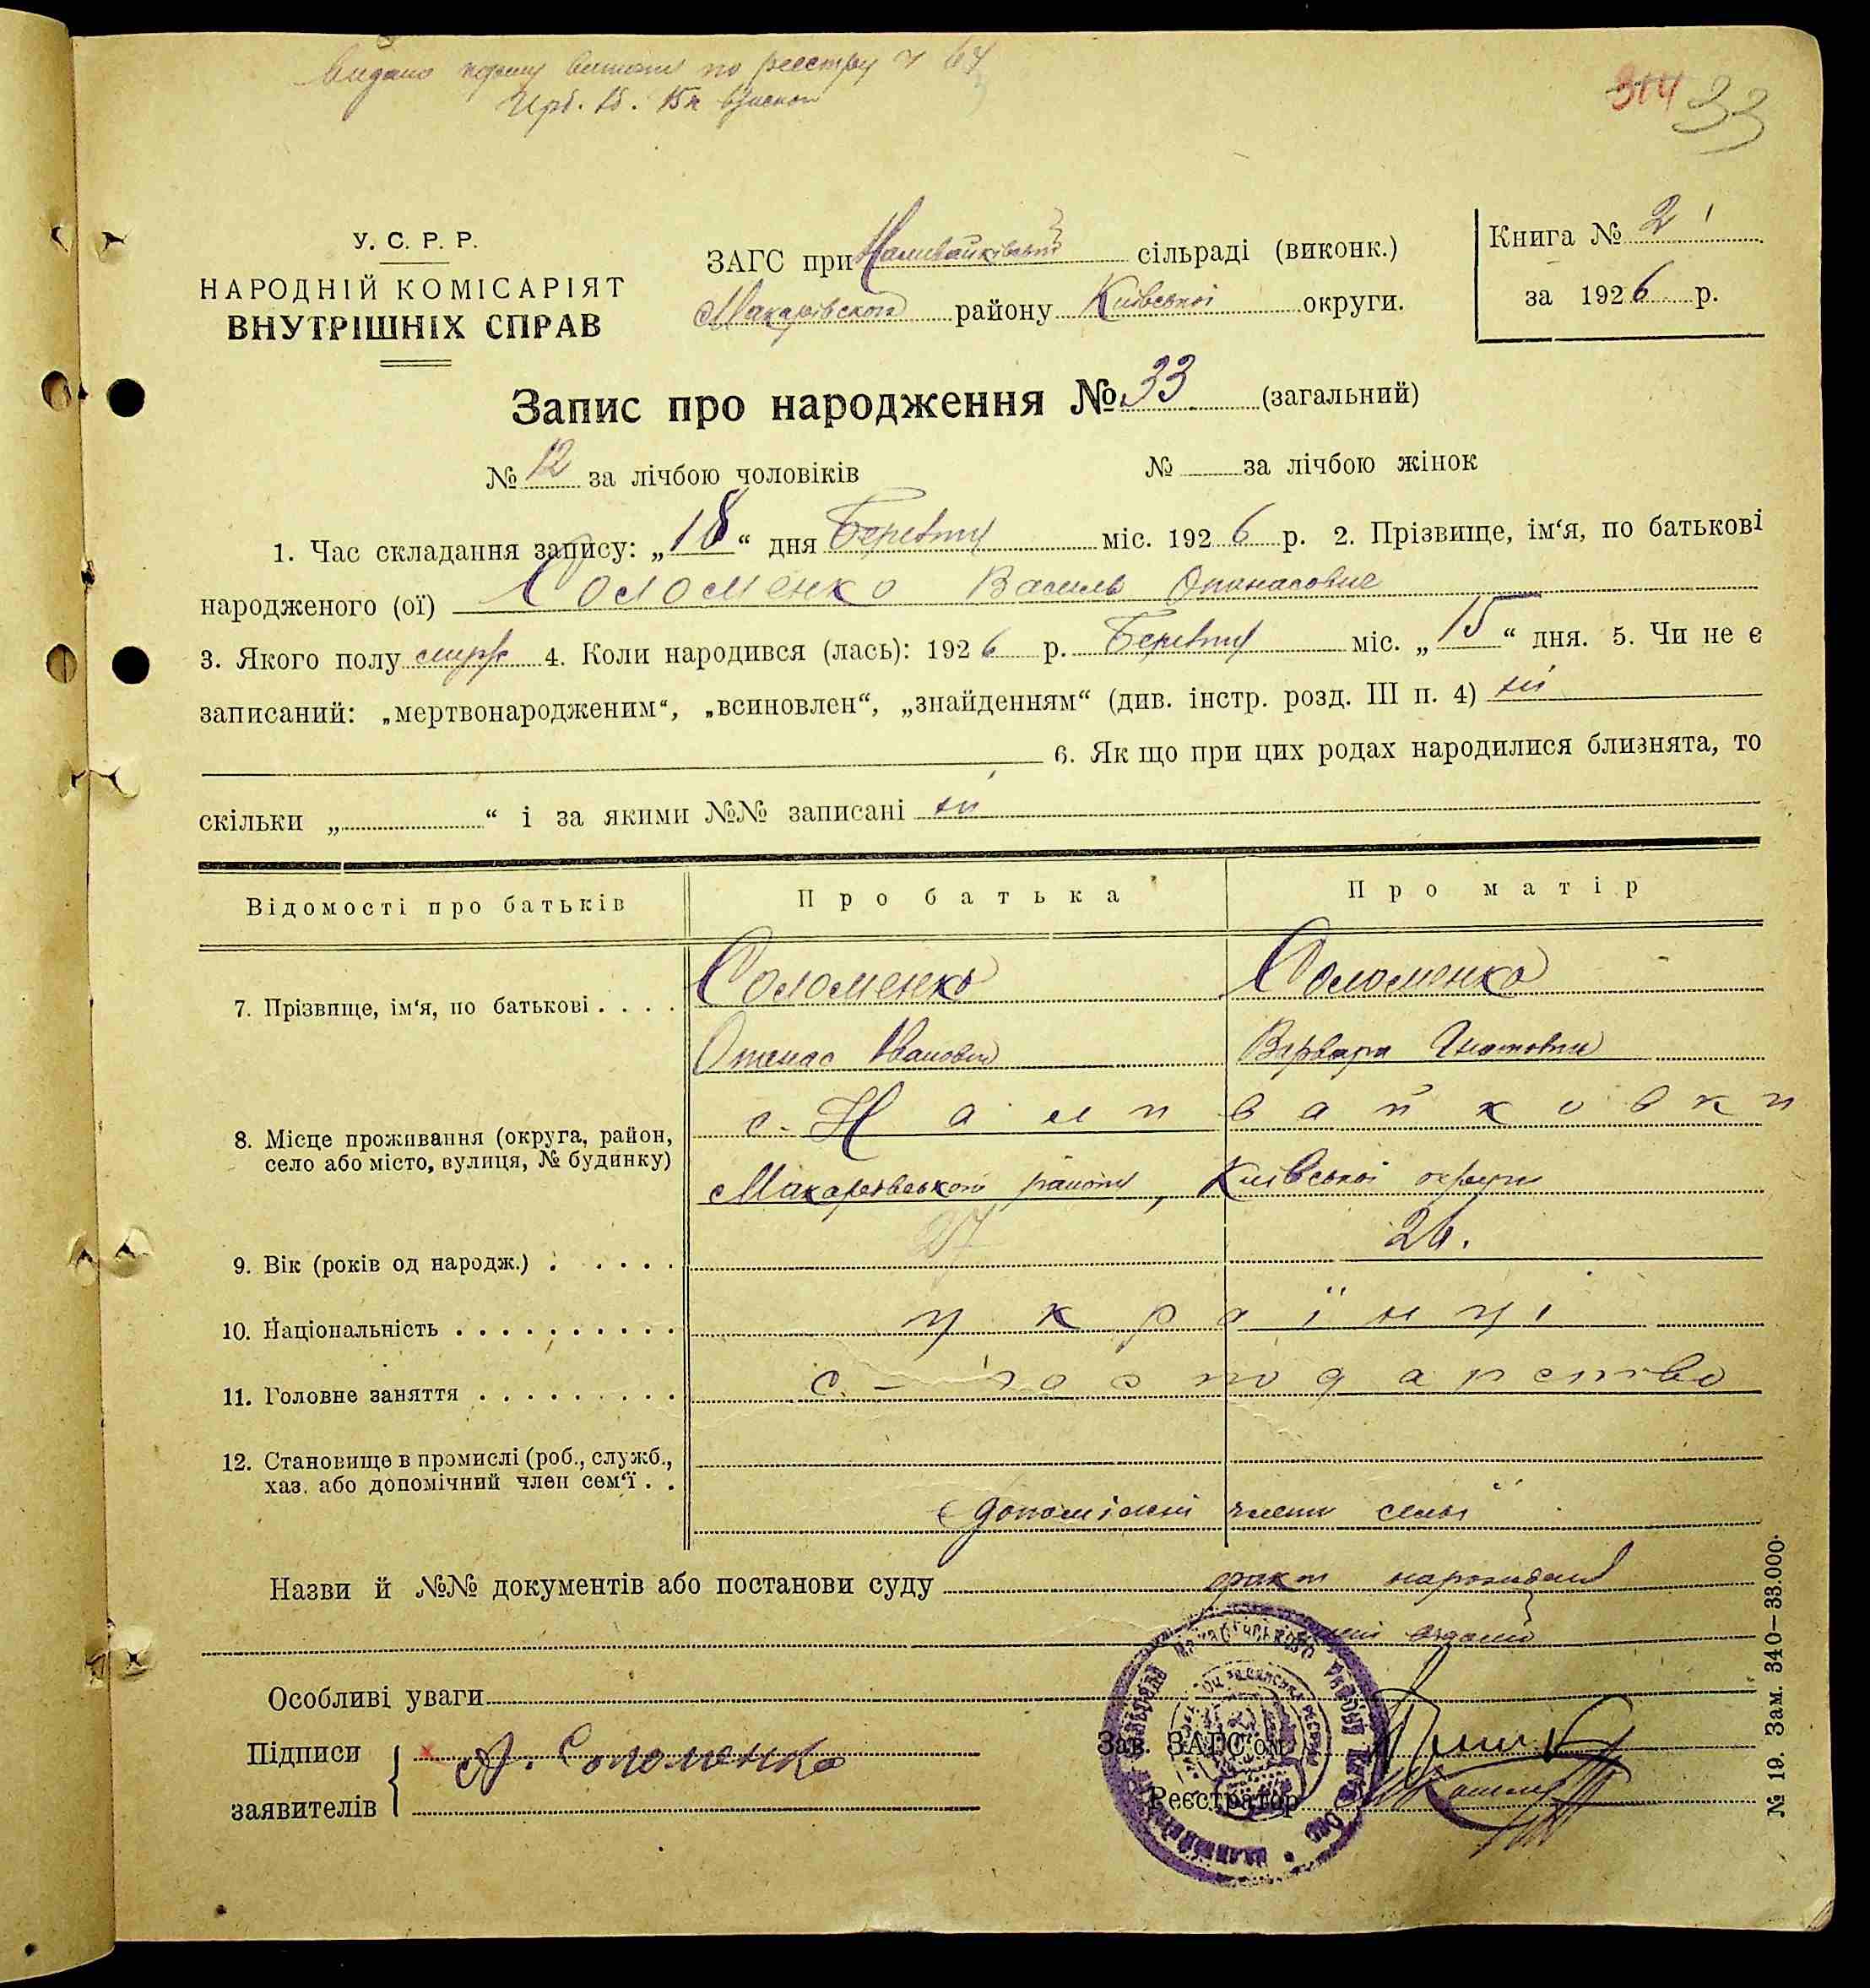 Видано по реєстру 64
15
314 33
У. С. Р. Р.
НАРОДНІЙ КОМІСАРІЯТ
ВНУТРІШНІХ СПРАВ
ЗАГС при Наливайківській сільраді (виконк.)
Макарівського району Київської округи.
Книга № 2
за 1926 р.
Запис про народження № 33 (загальний)
№ 12 за лічбою чоловіків
№ за лічбою жінок
1. Час складання запису: „18“ дня міс. 1926 р. 2. Прізвище, ім'я, по батькові
народженого (ої) Соломенко Василь Опанасович
3. Якого полу 4. Коли народився (лась): 1926 р. міс. „15“ дня. 5. Чи не є
записаний: „мертвонародженим“, „всиновлен“, „знайденням“ (див. інстр. розд. III п. 4) ні
6. Як що при цих родах народилися близнята, то
скільки „ “ і за якими №№ записані ні
Відомості про батьків
Про батька
Про матір
7. Прізвище, ім'я, по батькові . . . .
Соломенко
Соломенко
Опанас Іванович
Варвара Гнатовна
8. Місце проживання (округа, район,
село або місто, вулиця, № будинку)
с. Наливайковки
Макарівського району, Київської округи
9. Вік (років од народж.) . . . . . .
27
26.
10. Національність . . . . . . . . . .
українці
11. Головне заняття . . . . . . . . .
с-господарство
12. Становище в промислі (роб., служб.,
хаз. або допомічний член сем'ї . .
допомічні члени сем'ї
Назви й №№ документів або постанови суду факт
Особливі уваги
Підписи
заявителів
А. Соломенко
Зав. ЗАГС'ом
Реєстратор
№ 19. Зам. 340—33.000.